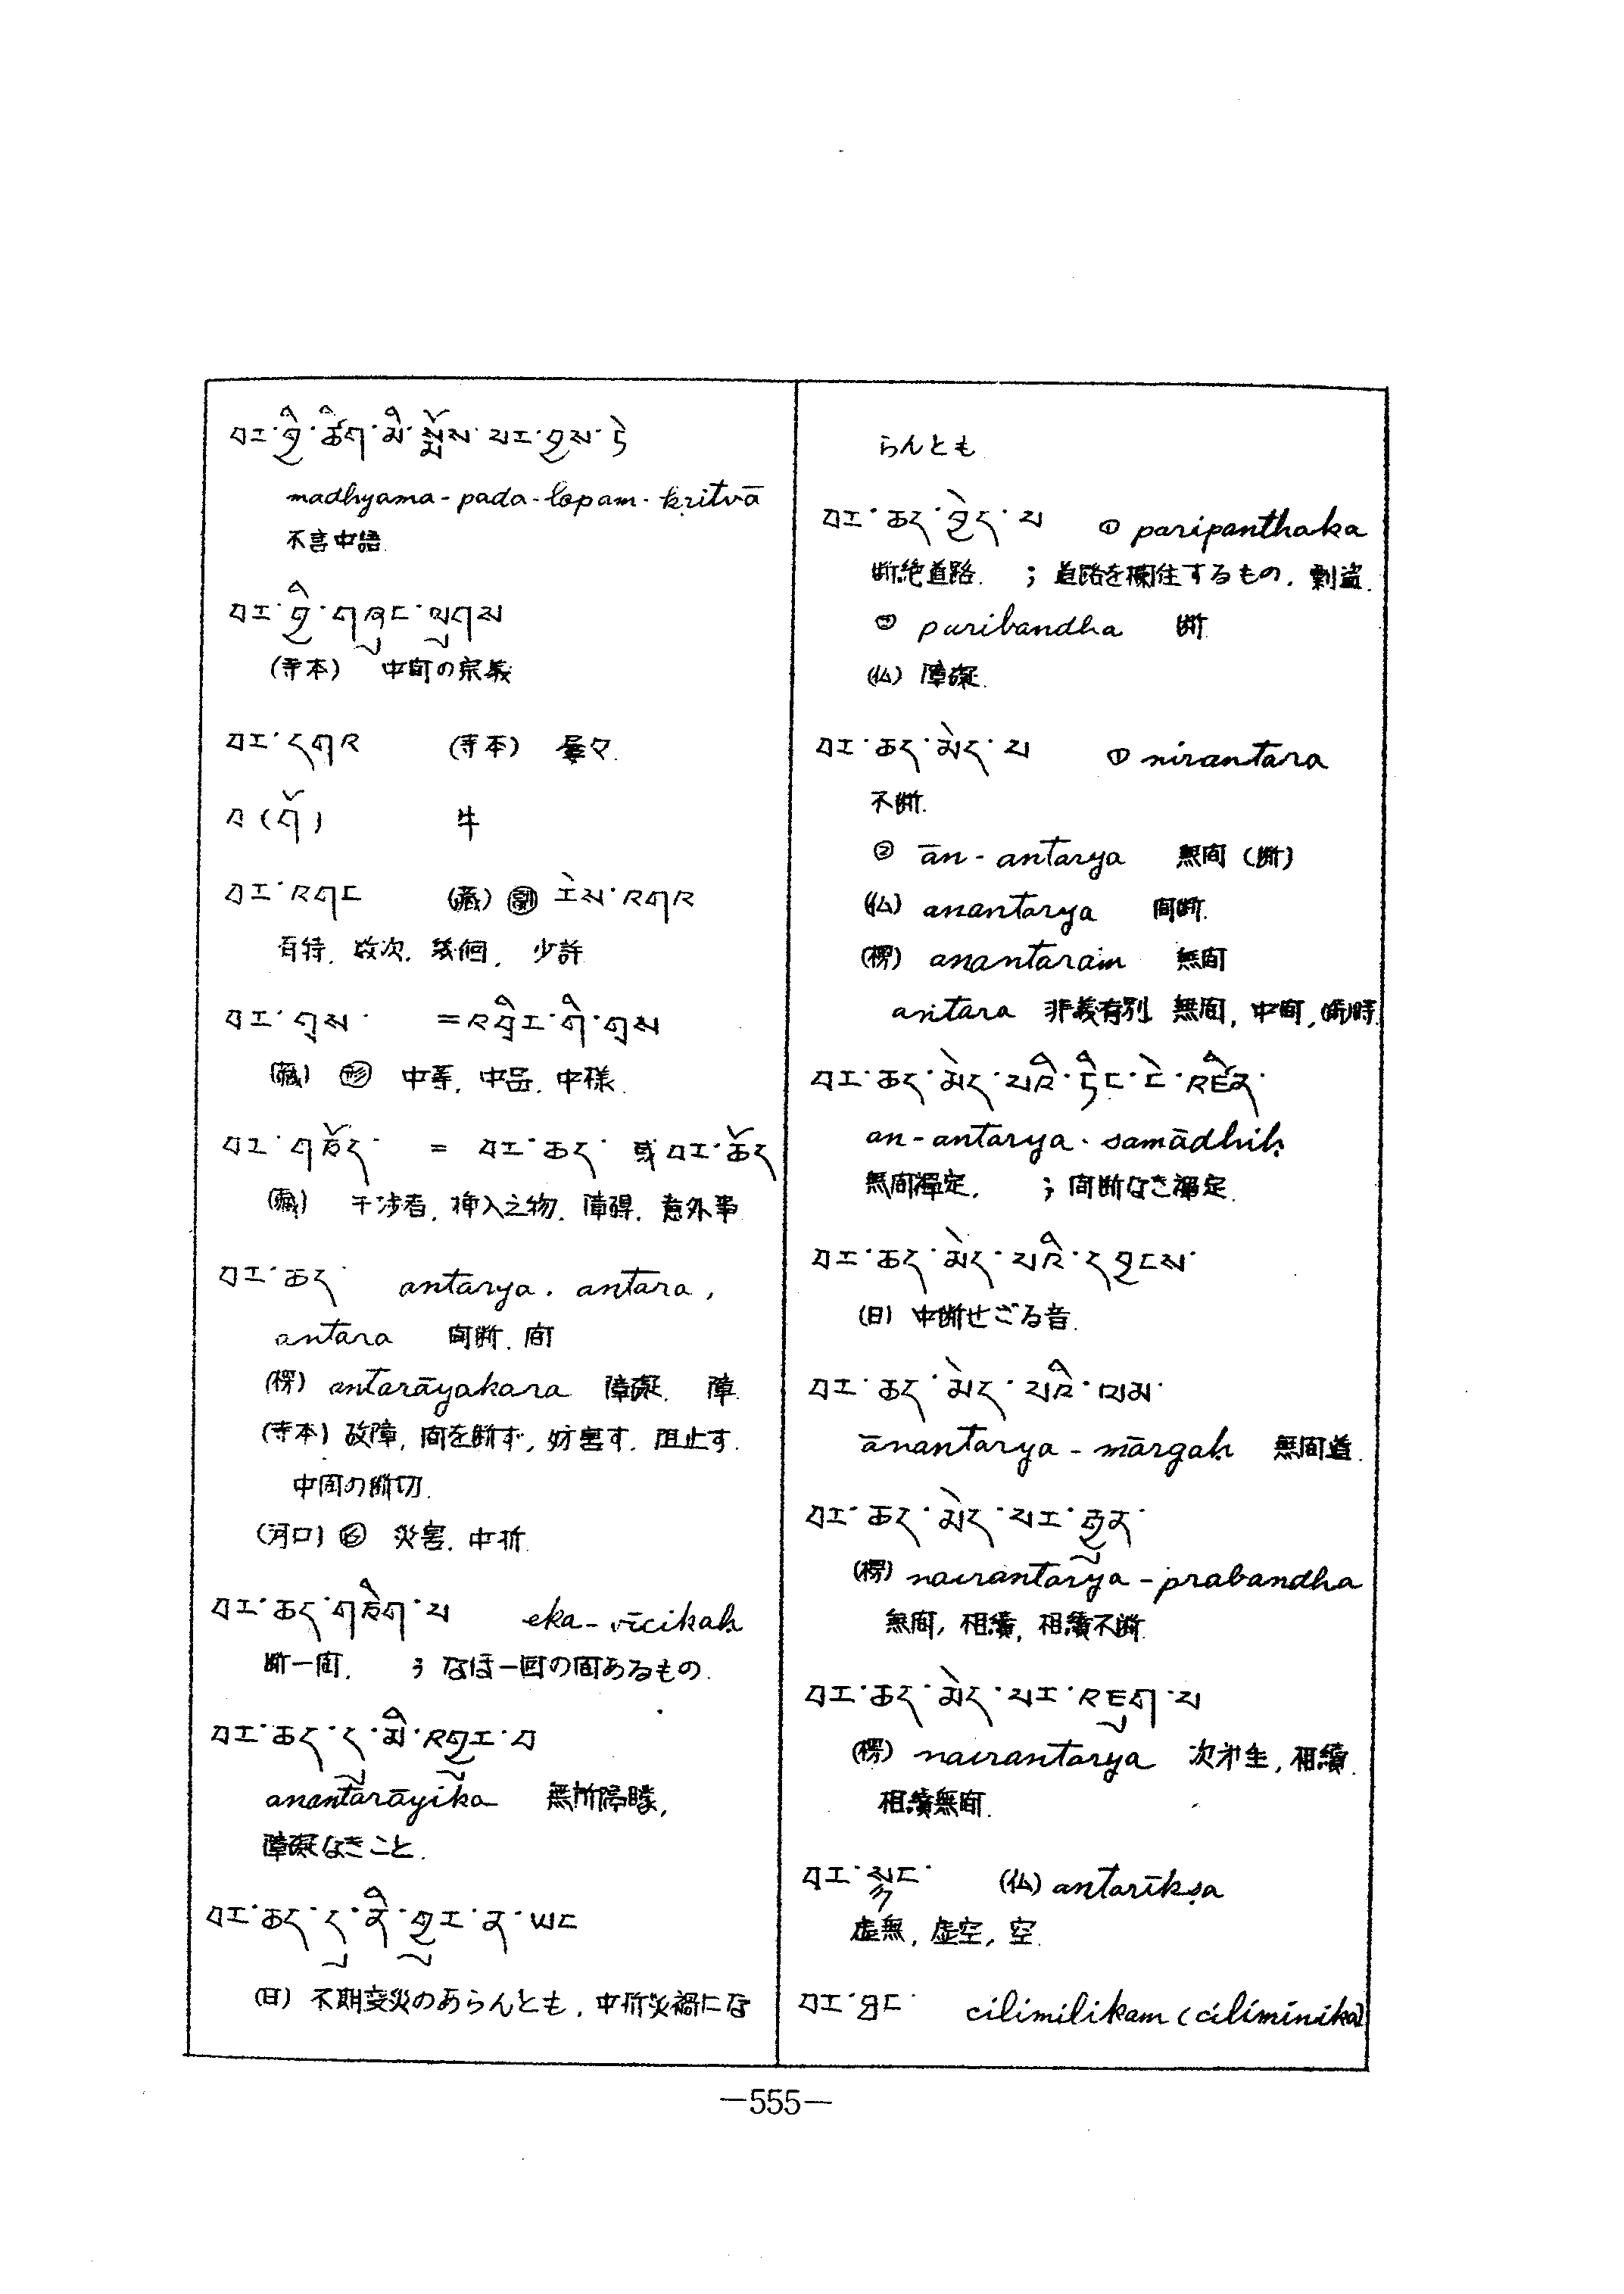 བར་གྱི་ཚིག་མི་སྨྲོས་པར་བྱས་ཏེ
madhyama-pada-lopam-kṛitvā
不言中語
བར་གྱི་གཞུང་ལུགས
(寺本) 中間の宗義
བར་དགའ (寺本) 屡々.
བ(གོ) 牛
བར་འགང (藏) 副 རེས་འགའ
有時. 故次. 幾個, 少許
བར་གྲས་ =འབྲིར་གི་གྲས
(藏) 形 中等, 中品, 中様.
བར་གཆོད་ = བར་ཆད་ 或 བར་ཆོད
(藏) 干渉者, 挿入之物, 障碍, 意外事
བར་ཆད་ antarya. antara,
antara 間断. 間
(楞) antarāyakara 障礙. 障.
(寺本) 故障, 間を断ず, 妨害す. 阻止す.
中間の断切.
(河口) 名 災害. 中折.
བར་ཆད་གཅིག་པ eka-vīcikaḥ
断一間. ; なほ一回の間あるもの.
བར་ཆད་དུ་མི་འགྱུར་བ
anantarāyika 無所停
障礙なきこと.
བར་ཆད་དུ་ནི་གྱུར་ན་ཡང
(日) 不期変災のあらんとも, 中折災禍にな
らんとも
བར་ཆད་བྱེད་པ ① paripanthaka
断絶道路. ; 道路を欄住するもの. 剽盗.
② paribandha 断
(仏) 障礙.
བར་ཆད་མེད་པ ① nirantara
不断.
② ān-antarya 無間 (断)
(仏) anantarya 間断.
(楞) anantaraṁ 無間
antara 非義有別 無間, 中間, 時
བར་ཆད་མེད་པའི་ཏིང་ངེ་འཛིན་
an-antarya-samādhiḥ
無間禪定. ; 間断なき禪定.
བར་ཆད་མེད་པའི་དབྱངས་
(日) 中断せざる音.
བར་ཆད་མེད་པའི་ལམ་
ānantarya-mārgaḥ 無間道.
བར་ཆད་མེད་པར་རྒྱུན་
(楞) nairantarya-prabandha
無間, 相續, 相續不断.
བར་ཆད་མེད་པར་འཇུག་པ
(楞) nairantarya 次第生, 相續.
相續無間.
བར་སྣང་ (仏) antarīkṣa
虚無, 虚空, 空.
བར་ཐང་ cilimilikam (ciliminika)
—555—